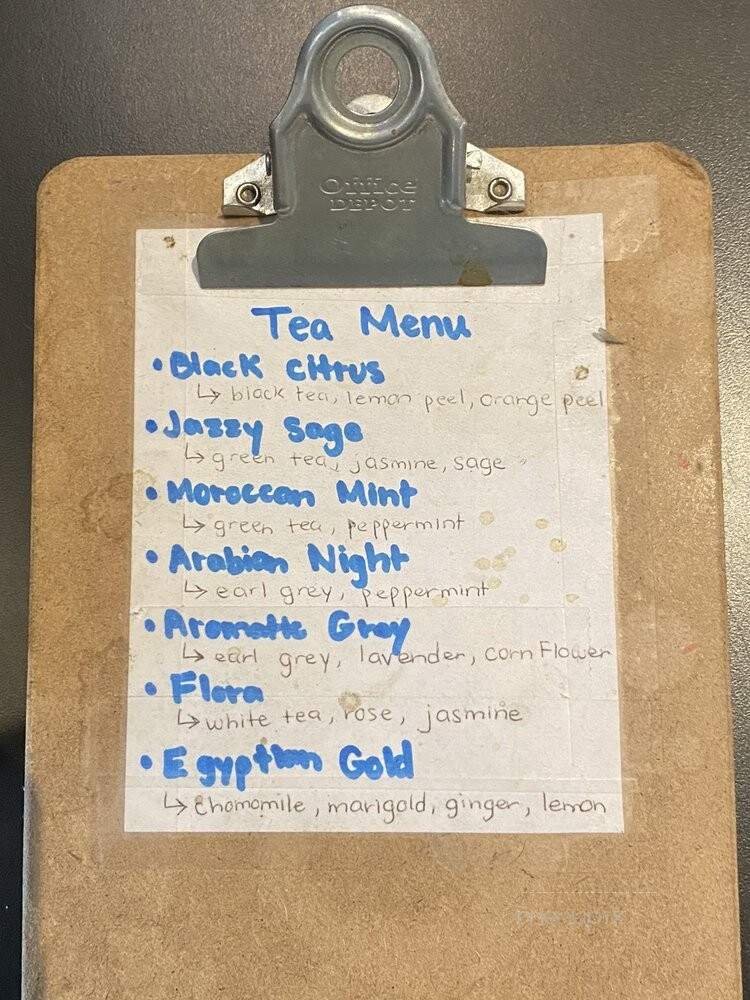 Office
DEPOT
Tea Menu
• Black citrus
↳ black tea, lemon peel, orange peel
• Jazzy Sage
↳ green tea, jasmine, sage
• Moroccan Mint
↳ green tea, peppermint
• Arabian Night
↳ earl grey, peppermint
• Aromatic Grey
↳ earl grey, lavender, corn Flower
• Flora
↳ white tea, rose, jasmine
• Egyptian Gold
↳ chamomile, marigold, ginger, lemon